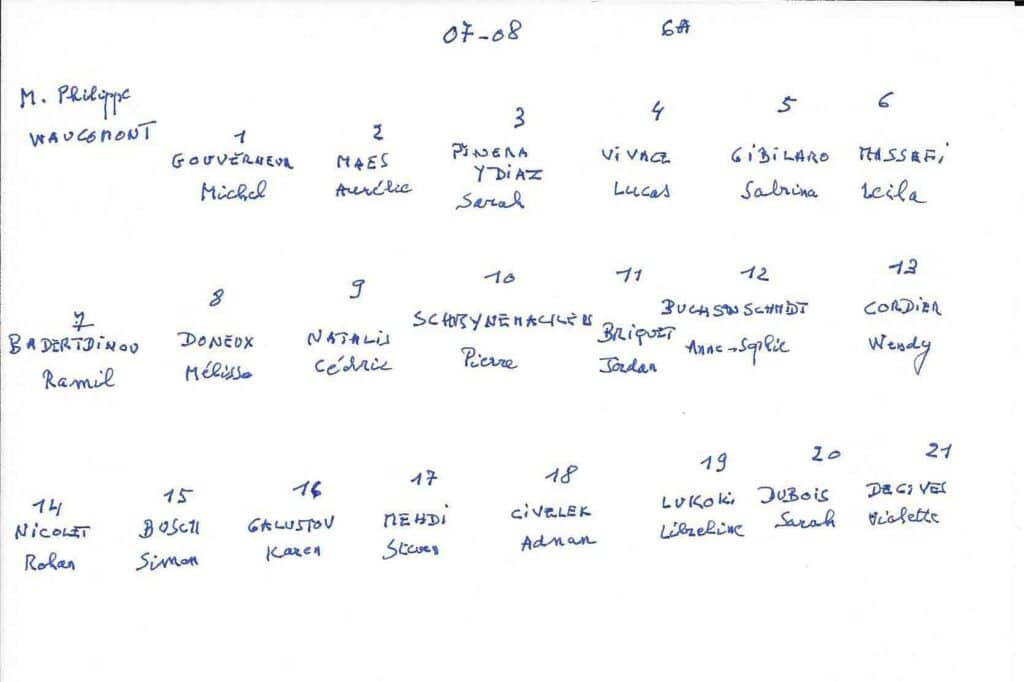 07-08 6A
M. Philippe
WAUCOMONT
1 2 3 4 5 6
GOUVERNEUR MAES PINERA VIVACE GIBILARO MASSEFI
Y DIAZ
Michel Aurélie Sarah Lucas Sabrina Leila
7 8 9 10 11 12 13
BADERTDINOV DONEUX NATALIS BRIQUET BUCHSENSCHMIDT CORDIER
Ramil Mélissa Cédric Pierre Jordan Anne-Sophie Wendy
14 15 16 17 18 19 20 21
NICOLET BOSCH GALUSTOV MEHDI CIVELEK LUKOKI DUBOIS DECIVES
Rohan Simon Karen Steven Adnan Sarah Violette